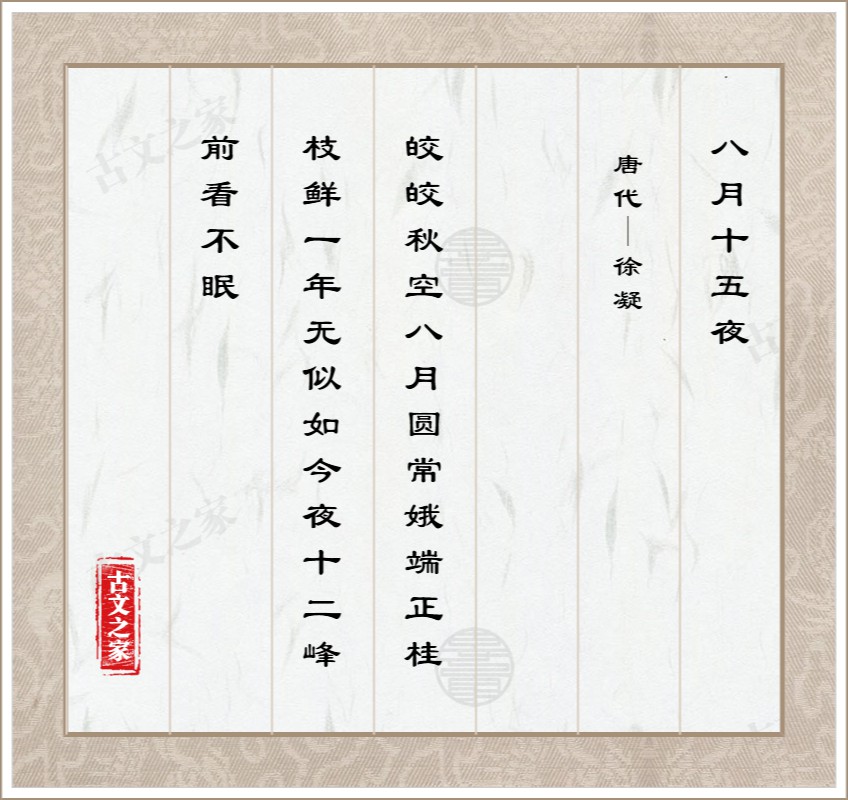 八月十五夜
唐代—徐凝
皎皎秋空八月圆常娥端正桂
枝鲜一年无似如今夜十二峰
前看不眠
古文之家
古文之家
文之家
古文